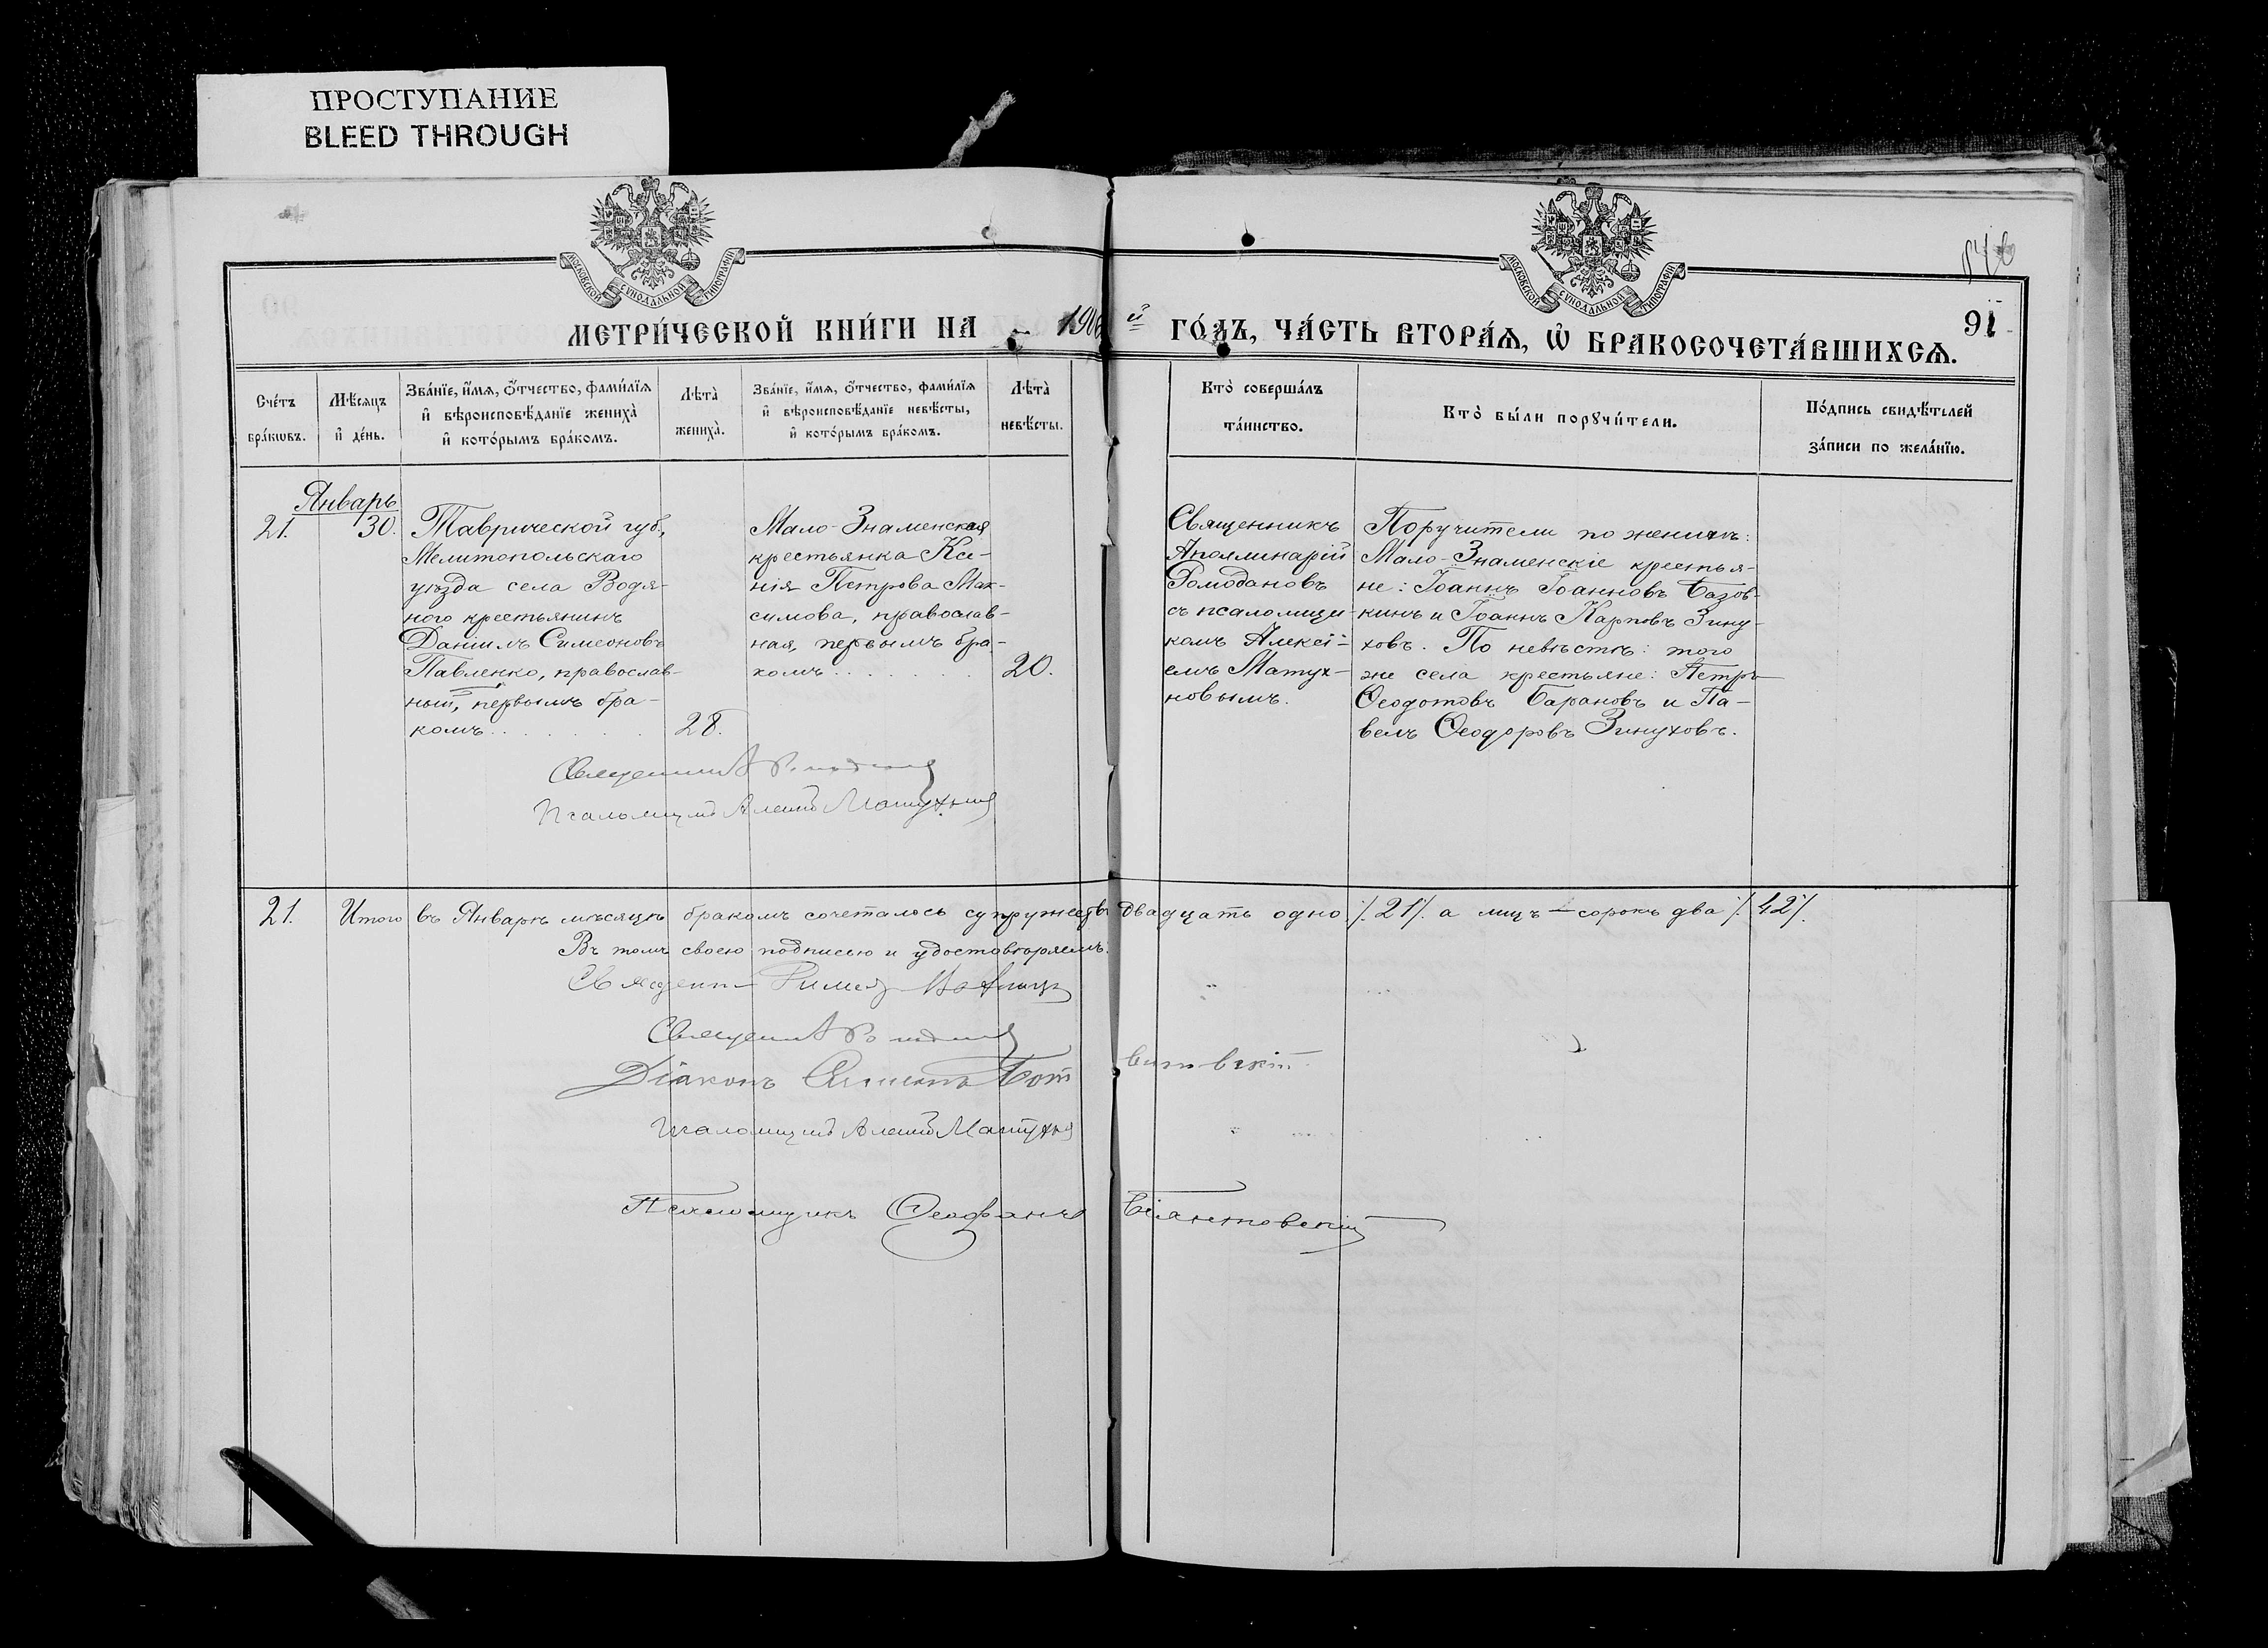 ПРОСТУПАНИЕ
BLEED THROUGH
МОСКОВСКОЙ СѴНОДАЛЬНОЙ ТИПОГРАФІИ
МОСКОВСКОЙ СѴНОДАЛЬНОЙ ТИПОГРАФІИ
МЕТРИ́ЧЕСКОЙ КНИ́ГИ НА 1906 й ГО́ДЪ, ЧА́СТЬ ВТОРА́Ѧ, Ѽ БРАКОСОЧЕТА́ВШИХСѦ.
91
Сче́тъ
бра́кѡвъ.
Мѣ́сяцъ
и҆ де́нь.
Зва́нїе, и҆́мѧ, ѻ҆́тчество, фами́лїѧ
и҆ вѣроисповѣ́данїе жениха̀
и҆ кото́рымъ бра́комъ.
Лѣта̀
жениха̀.
Зва́нїе, и҆́мѧ, ѻ҆́тчество, фами́лїѧ
и҆ вѣроисповѣ́данїе невѣ́сты,
и҆ кото́рымъ бра́комъ.
Лѣта̀
невѣ́сты.
Кто̀ соверша́лъ
та́инство.
Кто̀ бы́ли порꙋчи́тели.
По́дпись свидѣ́телей
за́писи по жела́нїю.
Январь
21.
30.
Таврической губ.,
Мелитопольскаго
уѣзда села Водя-
ного крестьянинъ
Даніилъ Симеоновъ
Павленко, православ-
ный, первымъ бра-
комъ . . . . . . .
28.
Мало-Знаменская
крестьянка Ксе-
нія Петрова Мак-
симова, православ-
ная, первымъ бра-
комъ . . . . . . .
20.
Священникъ
Аполлинарій
Ромодановъ
съ псаломщи-
комъ Алексі-
емъ Матух-
новымъ.
Поручители по женихѣ:
Мало-Знаменскіе крестья-
не: Іоаннъ Іоанновъ Базов-
кинъ и Іоаннъ Карповъ Зину-
ховъ. По невѣстѣ: того
же села крестьяне: Петръ
Ѳеодотовъ Барановъ и Па-
велъ Ѳеодоровъ Зинуховъ.
Священникъ А Ромодановъ
Псаломщикъ Алексій Матухновъ
21. Итого въ Январѣ мѣсяцѣ бракомъ сочеталось супружествъ двадцать одно ٪ 21 ٪ а лицъ – сорокъ два ٪ 42 ٪.
Въ томъ своею подписью и удостовѣряемъ:
Священн
Священникъ А Ромодановъ
Діаконъ
Псаломщикъ Алексій Матухновъ
Псаломщикъ Ѳеофанъ